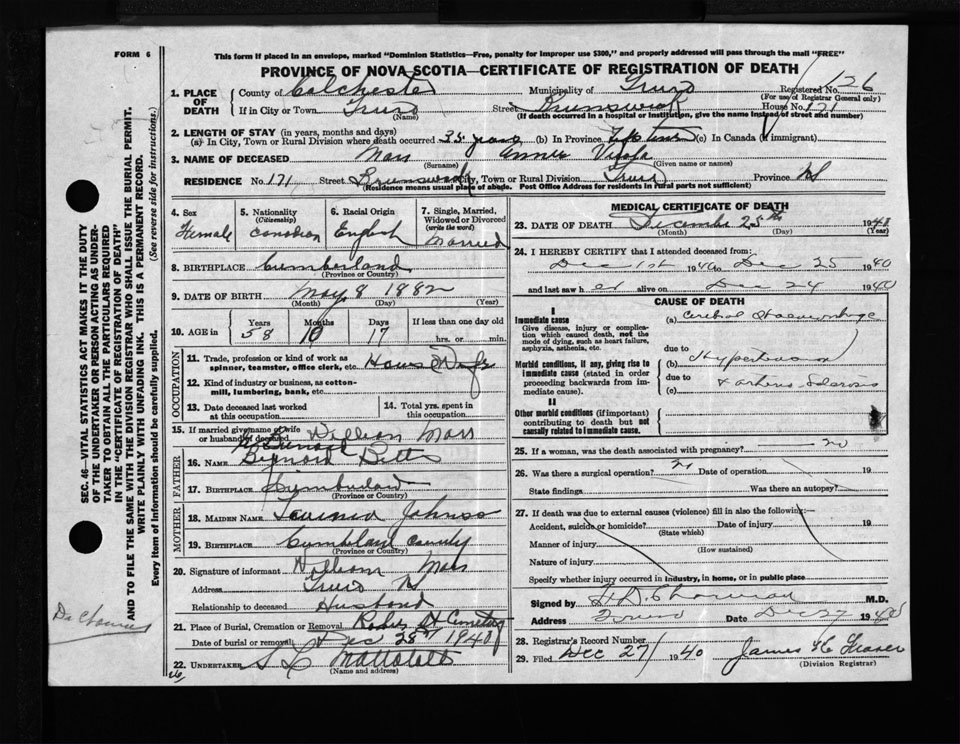 FORM 6
This form if placed in an envelope, marked "Dominion Statistics—Free, penalty for improper use $300," and properly addressed will pass through the mail "FREE"
PROVINCE OF NOVA SCOTIA—CERTIFICATE OF REGISTRATION OF DEATH
SEC. 46—VITAL STATISTICS ACT MAKES IT THE DUTY
OF THE UNDERTAKER OR PERSON ACTING AS UNDER-
TAKER TO OBTAIN ALL THE PARTICULARS REQUIRED
IN THE "CERTIFICATE OF REGISTRATION OF DEATH"
AND TO FILE THE SAME WITH THE DIVISION REGISTRAR WHO SHALL ISSUE THE BURIAL PERMIT.
WRITE PLAINLY WITH UNFADING INK. THIS IS A PERMANENT RECORD.
Every item of information should be carefully supplied. (See reverse side for instructions.)
1. PLACE OF DEATH
County of Colchester Municipality of Truro Registered No. 126
(For use of Registrar General only)
If in City or Town Truro Street Brunswick House No. 171
(Name) (If death occurred in a hospital or institution, give the name instead of street and number)
2. LENGTH OF STAY (in years, months and days)
(a) In City, Town or Rural Division where death occurred 35 years (b) In Province Life time (c) In Canada (if immigrant)
3. NAME OF DECEASED Annie Viola
(Surname) (Given name or names)
RESIDENCE No. 171 Street Brunswick City, Town or Rural Division Truro Province NS
(Residence means usual place of abode. Post Office Address for residents in rural parts not sufficient)
4. Sex Female
5. Nationality (Citizenship) Canadian
6. Racial Origin English
7. Single, Married, Widowed or Divorced (write the word) Married
8. BIRTHPLACE Cumberland
(Province or Country)
9. DATE OF BIRTH May 8 1882
(Month) (Day) (Year)
10. AGE in Years Months Days If less than one day old
58 17 hrs. or min.
OCCUPATION
11. Trade, profession or kind of work as spinner, teamster, office clerk, etc. House Wife
12. Kind of industry or business, as cotton-mill, lumbering, bank, etc.
13. Date deceased last worked at this occupation
14. Total yrs. spent in this occupation
15. If married give name of wife or husband of deceased William
FATHER
16. NAME
17. BIRTHPLACE Cumberland
(Province or Country)
MOTHER
18. MAIDEN NAME
19. BIRTHPLACE Cumberland County
(Province or Country)
20. Signature of informant William
Address Truro NS
Relationship to deceased Husband
21. Place of Burial, Cremation or Removal Cemetery
Date of burial or removal Dec 28th 1940
22. UNDERTAKER Mattatall
(Name and address)
MEDICAL CERTIFICATE OF DEATH
23. DATE OF DEATH December 25th 1940
(Month) (Day) (Year)
24. I HEREBY CERTIFY that I attended deceased from:
Dec 1st 1940 to Dec 25 1940
and last saw her alive on Dec 24 1940
CAUSE OF DEATH
I
Immediate cause
Give disease, injury or complication which caused death, not the mode of dying, such as heart failure, asphyxia, asthenia, etc.
(a) Cerebral Haemorrhage
due to
Morbid conditions, if any, giving rise to immediate cause (stated in order proceeding backwards from immediate cause).
(b) Hypertension
due to
(c) + arterio Sclerosis
II
Other morbid conditions (if important) contributing to death but not causally related to immediate cause.
25. If a woman, was the death associated with pregnancy? no
26. Was there a surgical operation? Date of operation 19
State findings Was there an autopsy?
27. If death was due to external causes (violence) fill in also the following:—
Accident, suicide or homicide? Date of injury 19
(State which)
Manner of injury
(How sustained)
Nature of injury
Specify whether injury occurred in industry, in home, or in public place
Signed by M.D.
Address Truro Date Dec 27 1940
28. Registrar's Record Number
29. Filed Dec 27 1940 James
(Division Registrar)